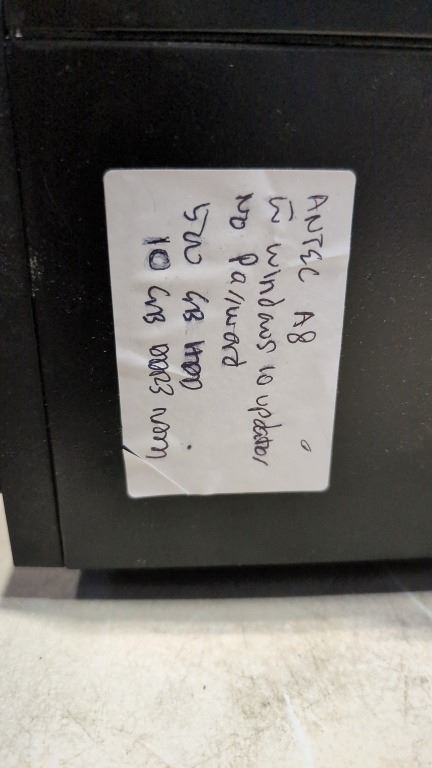 ANTEC A8
windows 10 updates
No Password
500 GB HDD
10 GB DDR3